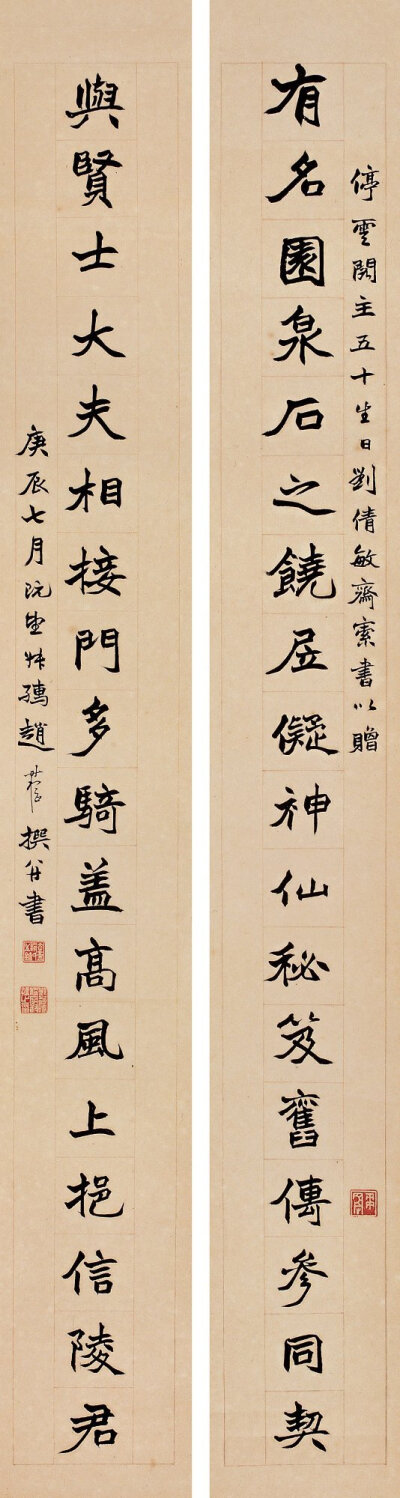 停雲閣主五十生日劉倩敏齋索書以贈
有名園泉石之饒居儗神仙秘笈舊傳參同契
與賢士大夫相接門多騎蓋高風上挹信陵君
庚辰七月 趙 撰并書